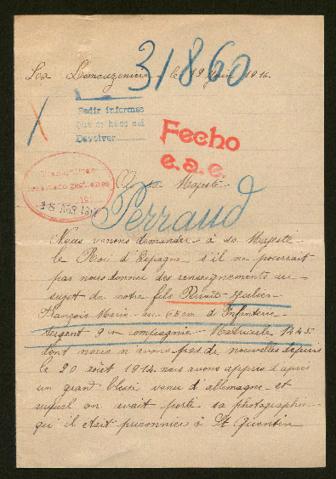 La le 19 Juin 1916.
31860
Pedir informes
Devolver
Fecho
e.a.e.
A sa Majesté.
Perraud
Nous venons demander à sa Majesté
le Roi d'Espagne s'il ne pourrait
pas nous donner des renseignements au
sujet de notre fils Julien
François Marie du 65em d'Infanterie
Sergent 9em compagnie Matricule 1445.
dont nous n'avons pas de nouvelles depuis
le 20 août 1914. nous avons appris d'après
un grand blessé venu d'allemagne et
auquel on avait porté sa photographie
qu'il était prisonnier à St Quentin